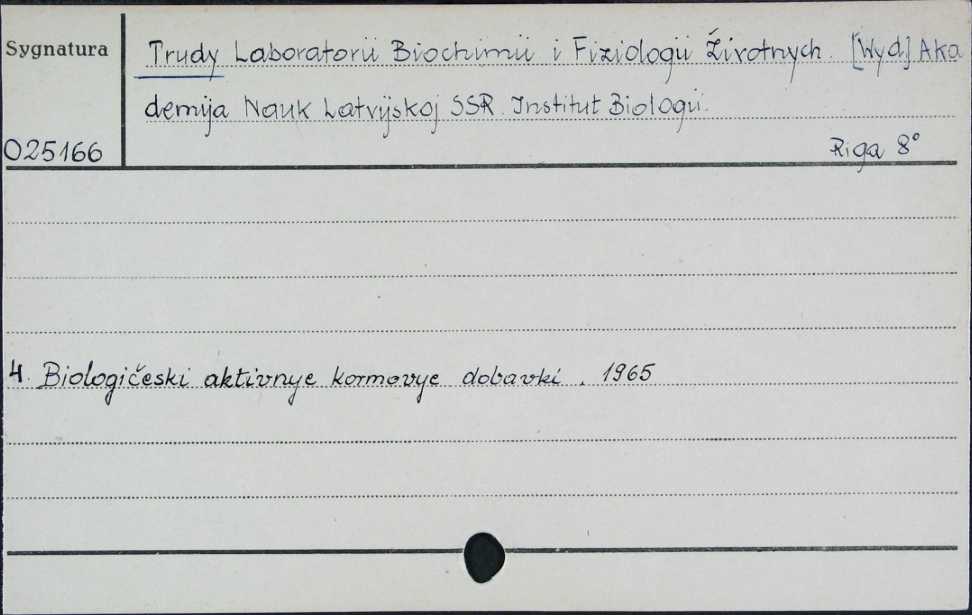 Sygnatura
Trudy Laboratorii Biochimii i Fiziologii Životnych. [Wyd] Aka
demija Nauk Latvijskoj SSR. Institut Biologii.
025166
Riga 8°
4. Biologičeski aktivnye kormovye dobavki. 1965